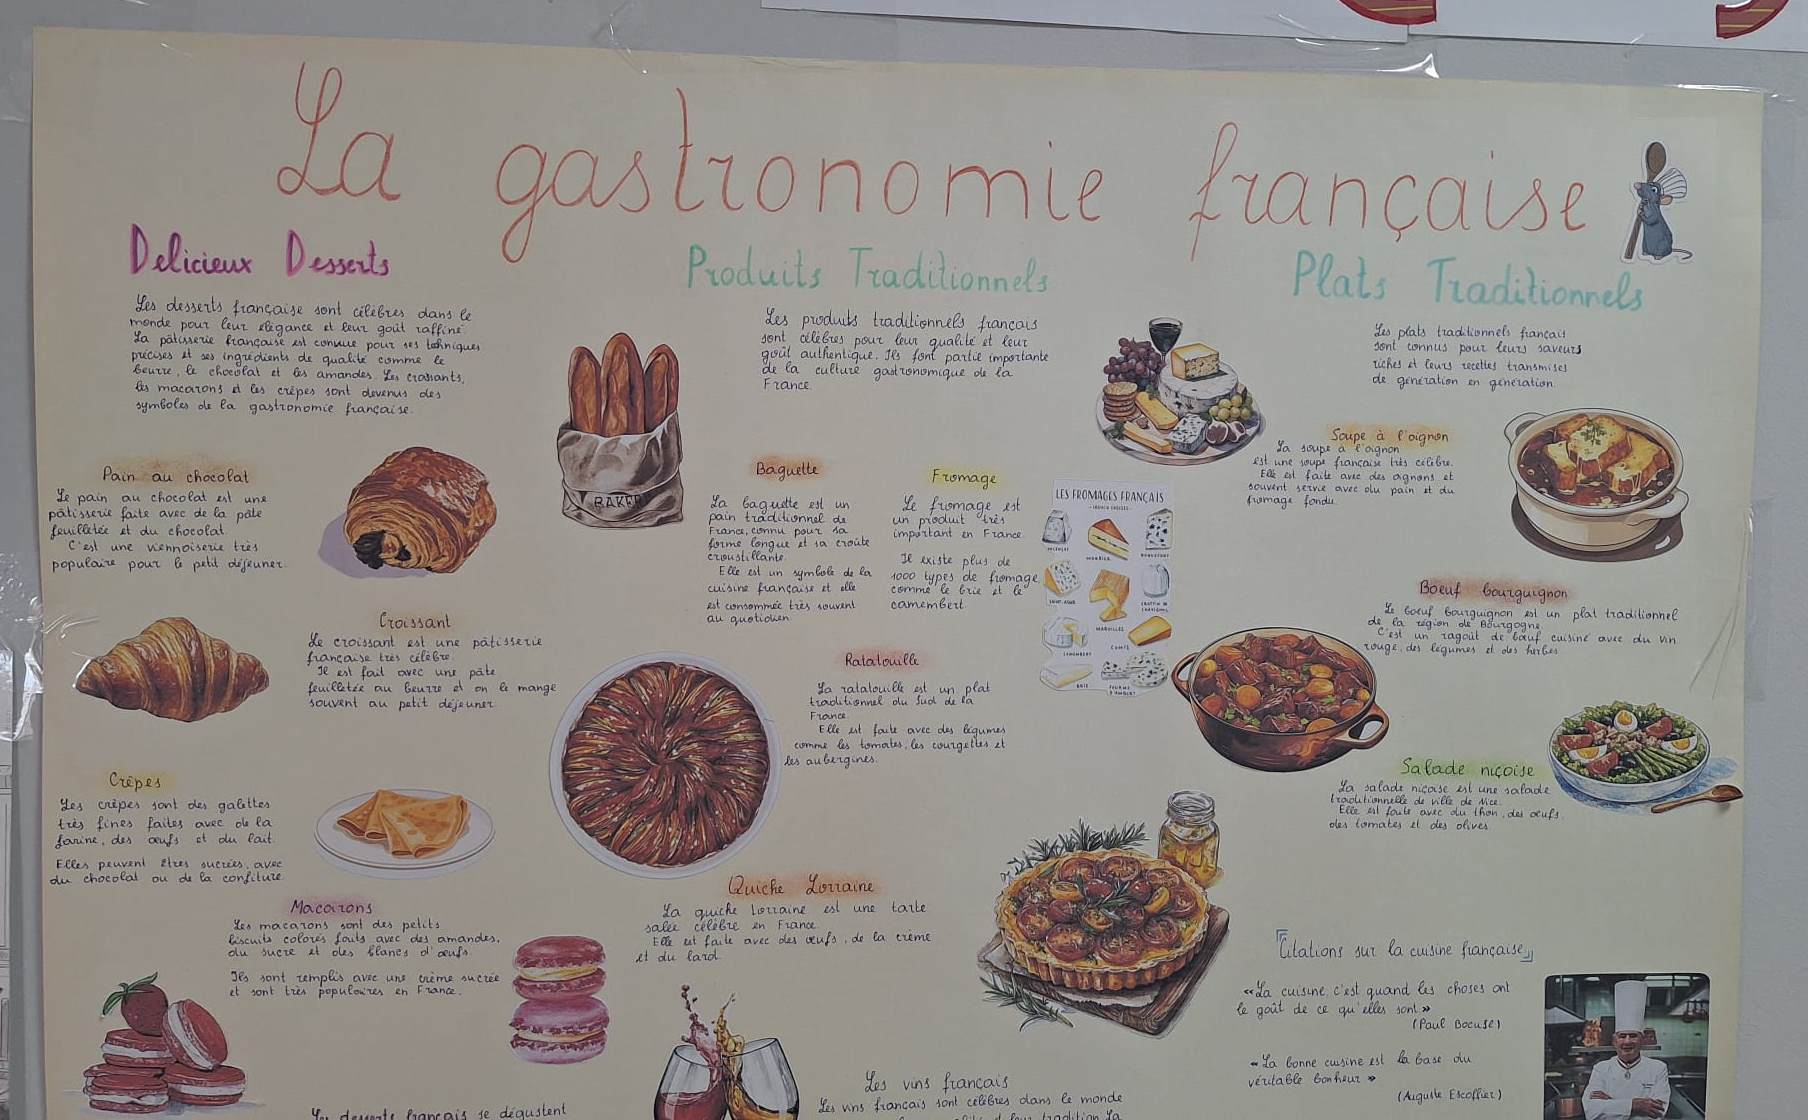 La gastronomie française
Delicieux Desserts
Les desserts française sont célèbres dans le
monde pour leur élégance et leur goût raffiné.
La pâtisserie française est connue pour ses techniques
précises et ses ingrédients de qualité comme le
beurre, le chocolat et les amandes. Les croissants,
les macarons et les crêpes sont devenus des
symboles de la gastronomie française.
Pain au chocolat
Le pain au chocolat est une
pâtisserie faite avec de la pâte
feuilletée et du chocolat.
C'est une viennoiserie très
populaire pour le petit déjeuner.
Croissant
Le croissant est une pâtisserie
française très célèbre.
Il est fait avec une pâte
feuilletée au beurre et on le mange
souvent au petit déjeuner.
Crêpes
Les crêpes sont des galettes
très fines faites avec de la
farine, des œufs et du lait.
Elles peuvent êtres sucrées, avec
du chocolat ou de la confiture.
Macarons
Les macarons sont des petits
biscuits colorés faits avec des amandes,
du sucre et des blancs d'œufs.
Ils sont remplis avec une crème sucrée
et sont très populaires en France.
Les desserts français se dégustent
Produits Traditionnels
Les produits traditionnels français
sont célèbres pour leur qualité et leur
goût authentique. Ils font partie importante
de la culture gastronomique de la
France.
BAKER
Baguette
La baguette est un
pain traditionnel de
France, connu pour sa
forme longue et sa croûte
croustillante.
Elle est un symbole de la
cuisine française et elle
est consommée très souvent
au quotidien.
Fromage
Le fromage est
un produit très
important en France.
Il existe plus de
1000 types de fromage,
comme le brie et le
camembert.
LES FROMAGES FRANÇAIS
MORBIER
ROQUEFORT
SAINT-AGUR
CROTTIN DE
CHAVIGNOL
MAROILLES
CAMEMBERT
COMTÉ
BRIE
FOURME
D'AMBERT
Ratatouille
La ratatouille est un plat
traditionnel du Sud de la
France.
Elle est faite avec des légumes
comme les tomates, les courgettes et
les aubergines.
Quiche Lorraine
La quiche Lorraine est une tarte
salée célèbre en France.
Elle est faite avec des œufs, de la crème
et du lard.
Les vins français
Les vins français sont célèbres dans le monde
Plats Traditionnels
Les plats traditionnels français
sont connus pour leurs saveurs
riches et leurs recettes transmises
de génération en génération.
Soupe à l'oignon
La soupe à l'oignon
est une soupe française très célèbre.
Elle est faite avec des oignons et
souvent servie avec du pain et du
fromage fondu.
Boeuf bourguignon
Le boeuf bourguignon est un plat traditionnel
de la région de Bourgogne.
C'est un ragoût de bœuf cuisiné avec du vin
rouge, des légumes et des herbes.
Salade niçoise
La salade niçoise est une salade
traditionnelle de ville de Nice.
Elle est faite avec du thon, des œufs,
des tomates et des olives.
Citations sur la cuisine française
«La cuisine, c'est quand les choses ont
le goût de ce qu'elles sont.»
(Paul Bocuse)
«La bonne cuisine est la base du
véritable bonheur»
(Auguste Escoffier)